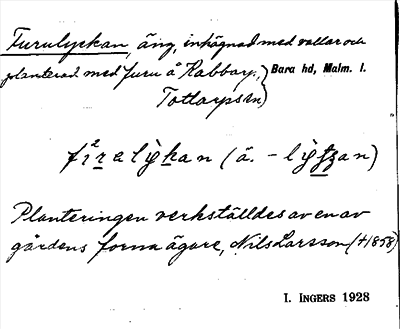 Furulyckan, äng, inhägnad med vallar och
planterad med furu å Rabbarp,
Bara hd, Malm. l.
Tottarps sn)
fìrelyckan (ä. - 
Planteringen verkställdes av en av
gårdens forna ägare, Nils Larsson (†1858)
I. INGERS 1928